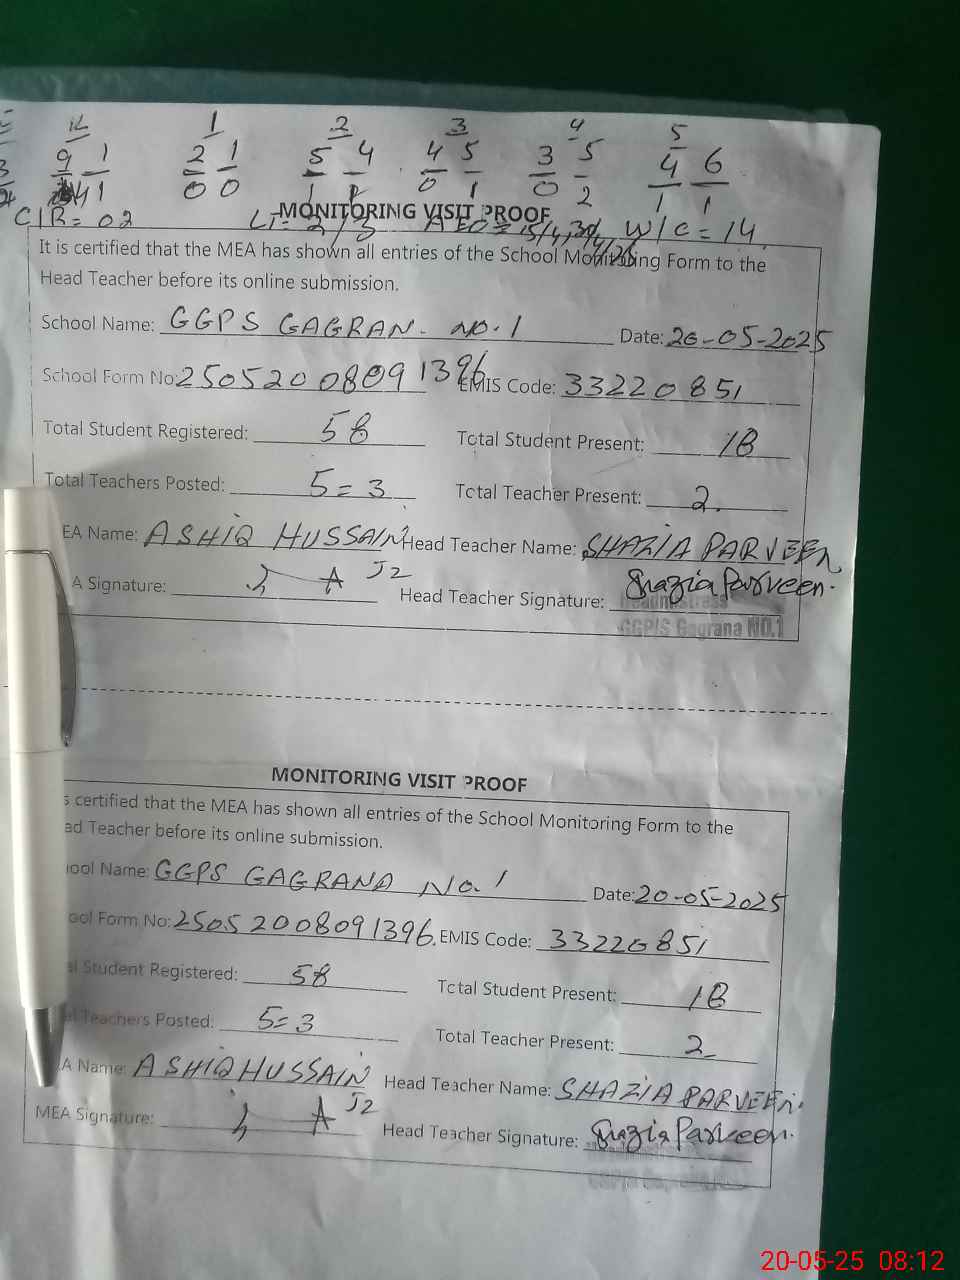 12 1 2 3 4 5
9 1 2 1 5 4 4 5 3 5 4 6
41 0 0 1 1 0 1 0 2 1 1
C/R = 02 LT = 2/3 W/C = 14
MONITORING VISIT PROOF
It is certified that the MEA has shown all entries of the School Monitoring Form to the
Head Teacher before its online submission.
School Name: GGPS GAGRAN. NO.1 Date: 20-05-2025
School Form No: 25052008091396 EMIS Code: 33220851
Total Student Registered: 58 Total Student Present: 18
Total Teachers Posted: 5=3 Total Teacher Present: 2.
EA Name: ASHIQ HUSSAIN Head Teacher Name: SHAZIA PARVEEN
A Signature: J2 Head Teacher Signature: Shazia Parveen.
Headmistress
GGP/S Gagrana NO.1
MONITORING VISIT PROOF
s certified that the MEA has shown all entries of the School Monitoring Form to the
ad Teacher before its online submission.
ool Name: GGPS GAGRANA No.1 Date: 20-05-2025
ool Form No: 25052008091396. EMIS Code: 33220851
al Student Registered: 58 Total Student Present: 18
al Teachers Posted: 5=3 Total Teacher Present: 2
A Name: ASHIQ HUSSAIN Head Teacher Name: SHAZIA PARVEEN.
MEA Signature: J2 Head Teacher Signature: Shazia Parveen.
20-05-25 08:12